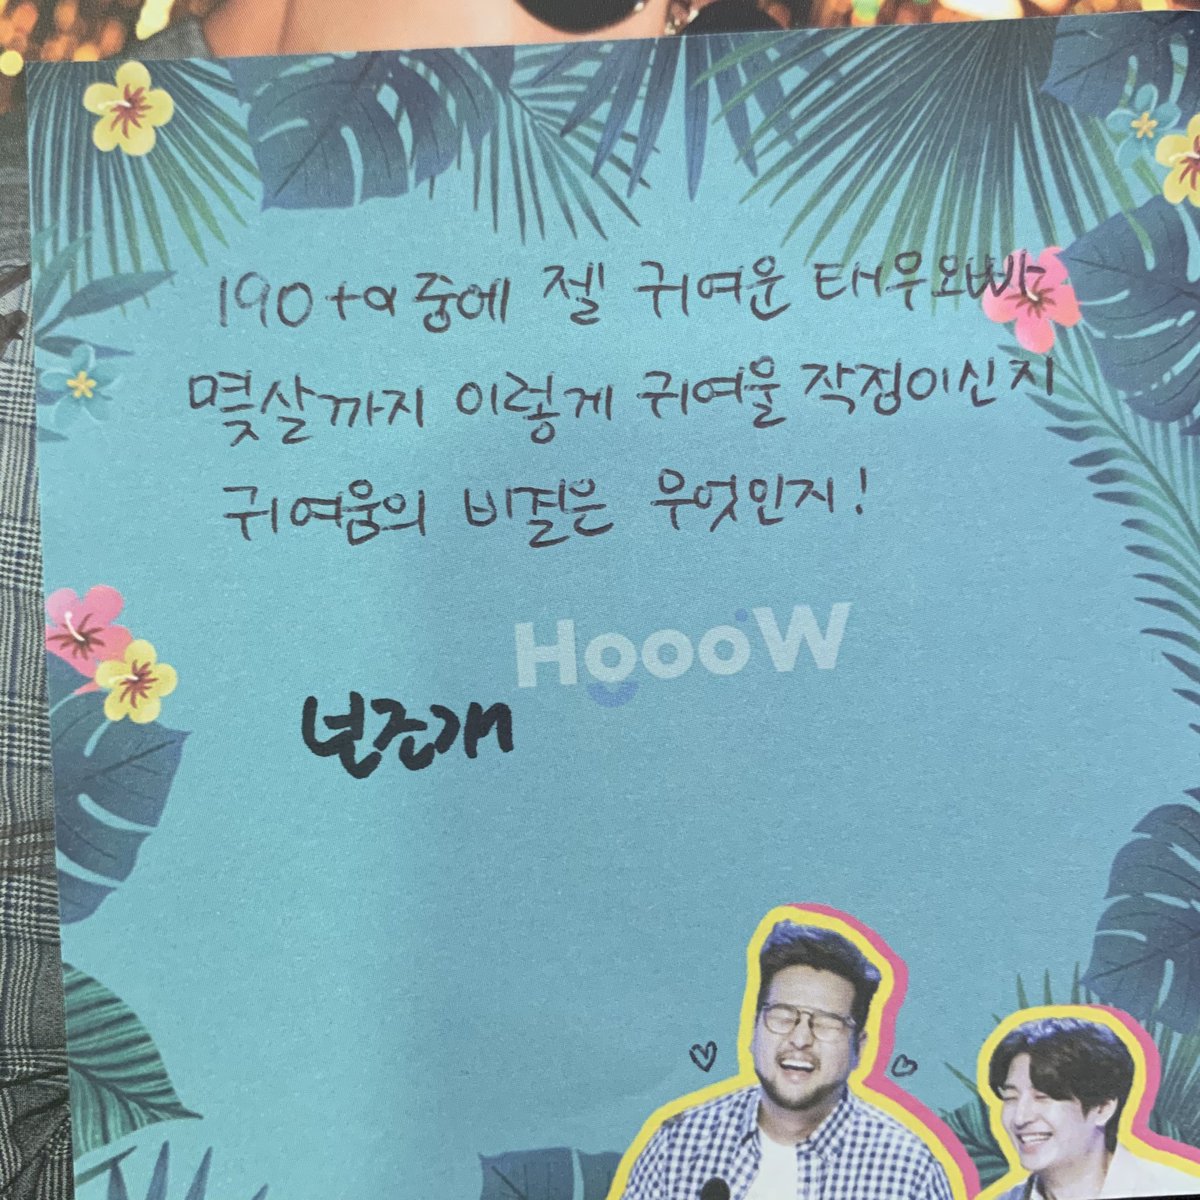 190+α중에 젤 귀여운 태우오빠
몇살까지 이렇게 귀여울 작정이신지
귀여움의 비결은 무엇인지!
HoooW
넌조개